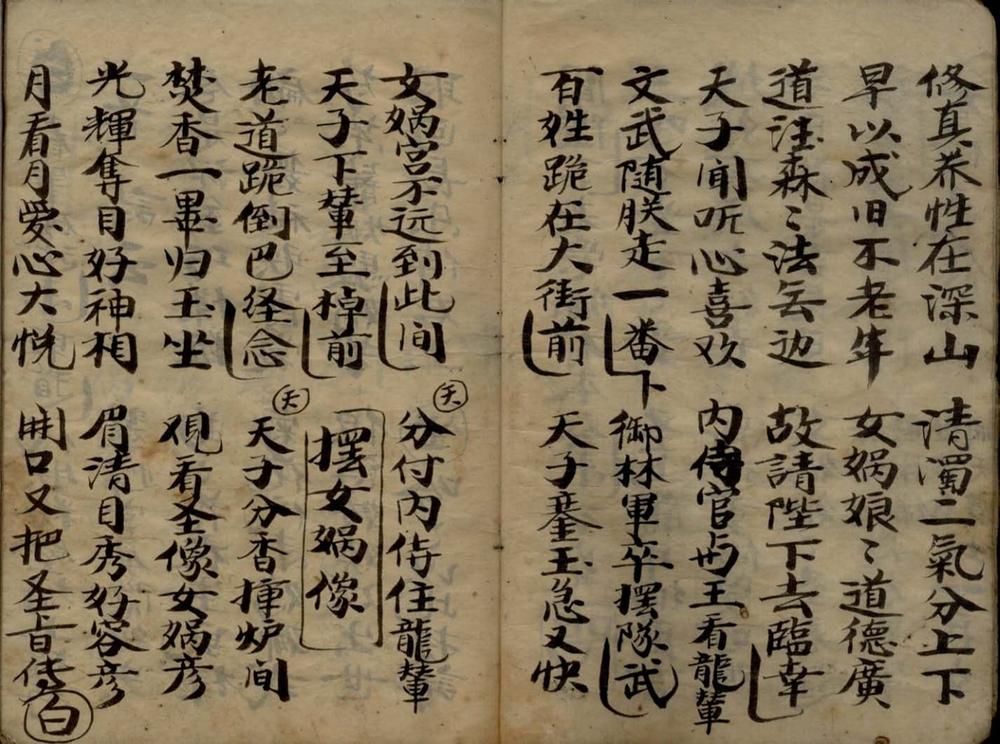 修真养性在深山 清濁二氣分上下
早以成旧不老年 女娲娘〻道德廣
道法森〻法無边 故請陛下去臨幸
天子闻听心喜欢 内侍官与王看龍輦
文武随朕走一番 下御林軍卒擺隊武
百姓跪在大街前 天子銮玉急又快
女娲宫不远到此间 分付内侍住龍輦
天子下輦至棹前 擺女娲像
老道跪倒巴经念 天子分香揷炉间
焚香一畢归玉坐 观看圣像女娲彦
光輝奪目好神相 眉清目秀好容彦
月看月爱心大悦 開口又把圣旨传
天
天
白